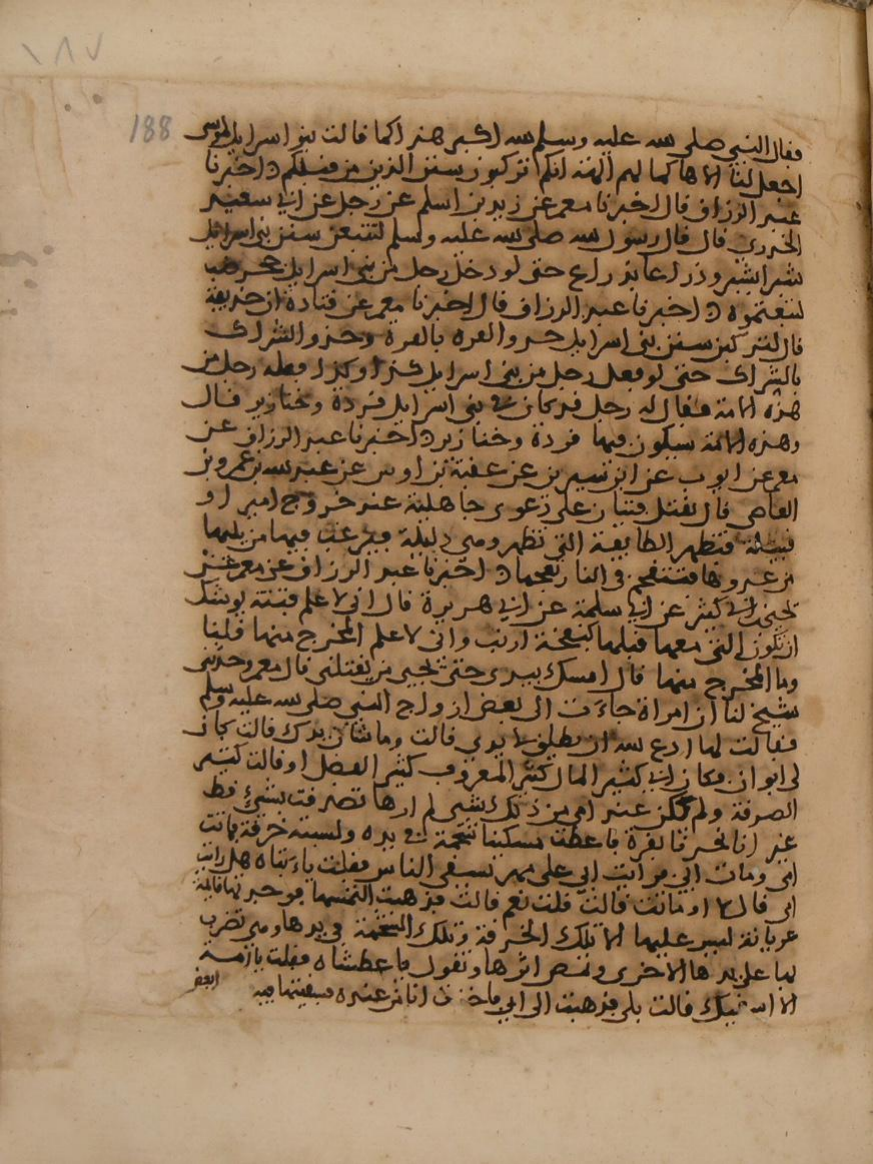 ١٨٧
188
فقال النبي صلى الله عليه وسلم الله اكبر هذا كما قالت بنو اسرايل لموسى
اجعل لنا الاها كما لهم الهة انكم تركبون سنن الذين من قبلكم اخبرنا
عبد الرزاق قال اخبرنا معمر عن زيد بن اسلم عن رجل عن ابي سعيد
الخدري قال قال رسول الله صلى الله عليه وسلم لتتبعن سنن بني اسرايل
شبرا بشبر وذراعا بذراع حتى لو دخل رجل من بني اسرايل جحر ضب
لتبعتموه اخبرنا عبد الرزاق قال اخبرنا معمر عن قتادة ان حذيفة
قال لتركبن سنن بني اسرايل حذو القذة بالقذة وحذو الشراك
بالشراك حتى لو فعل رجل من بني اسرايل كذا وكذا فعله رجل من
هذه الامة فقال له رجل قد كان في بني اسرايل قردة وخنازير قال
وهذه الامة سيكون فيها قردة وخنازير اخبرنا عبد الرزاق عن
معمر عن ايوب عن ابن سيرين عن عقبة بن اوس عن عبد الله بن عمرو بن
العاص قال يقتتل فئتان على دعوى جاهلية عند خروج امير او
قبيلة فتظهر الطايفة التي تظهر وهي ذليلة فيرغب فيها من يليها
من عدوها فتتقحم في النار تقحما اخبرنا عبد الرزاق عن معمر عن
يحيى بن ابي كثير عن ابي سلمة عن ابي هريرة قال اني لاعلم فتنة يوشك
ان تكون التي معها قبلها كنفجة ارنب واني لاعلم المخرج منها قلنا
وما المخرج منها قال امسك بيدي حتى يجيء من يقتلني قال معمر وحدثني
شيخ لنا ان امراة جاءت الى بعض ازواج النبي صلى الله عليه وسلم
فقالت لها ادع الله ان يطلق لي يدي قالت وما شان يدك قالت كان
لي ابوان فكان ابي كثير المال كثير المعروف كثير الفضل او قالت كثير
الصدقة ولم يكن عند امي من ذلك شيء لم ارها تصدقت بشيء قط
غير انا نحرنا بقرة فاعطت مسكينا شحمة في يده ولبسته خرقة فماتت
امي ومات ابي فرايت ابي على نهر يسقي الناس فقلت يا ابتاه هل رايت
امي قال لا اوماتت قالت قلت نعم قالت فذهبت التمسها فوجدتها قائمة
عريانة ليس عليها الا تلك الخرقة وتلك الشحمة في يدها وهي تضرب
بها على يدها الاخرى وتمص اثرها وتقول يا عطشاه فقلت يا امه
الا اسقيك قالت بلى فذهبت الى ابي فاخذت انا من عنده فسقيتها فيه